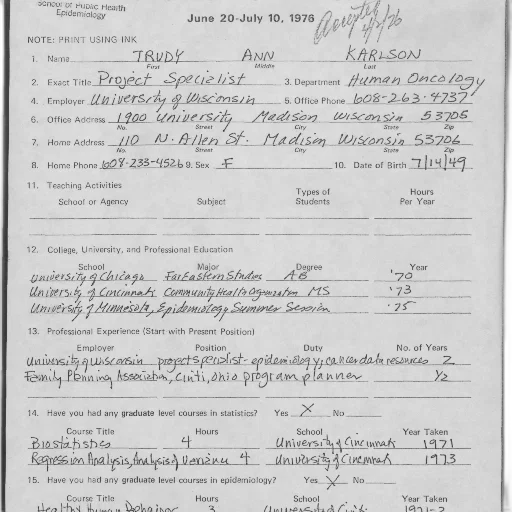 School of Public Health
Epidemiology
June 20-July 10, 1976
Accepted
4/2/76
NOTE: PRINT USING INK
1. Name TRUDY ANN KARLSON
First Middle Last
2. Exact Title Project Specialist 3. Department Human Oncology
4. Employer University of Wisconsin 5. Office Phone 608-263-4737
6. Office Address 1900 University Madison Wisconsin 53705
No. Street City State Zip
7. Home Address 110 N. Allen St. Madison Wisconsin 53706
No. Street City State Zip
8. Home Phone 608-233-4526 9. Sex F 10. Date of Birth 7/14/49
11. Teaching Activities
School or Agency Subject Types of Students Hours Per Year
12. College, University, and Professional Education
School Major Degree Year
University of Chicago Far Eastern Studies AB '70
University of Cincinnati Community Health Organization MS '73
University of Minnesota, Epidemiology Summer Session '75
13. Professional Experience (Start with Present Position)
Employer Position Duty No. of Years
University of Wisconsin project specialist - epidemiology, cancer data resources 2
Family Planning Association, Cinti, Ohio program planner 1/2
14. Have you had any graduate level courses in statistics? Yes X No
Course Title Hours School Year Taken
Biostatistics 4 University of Cincinnati 1971
Regression Analysis, Analysis of Variance 4 University of Cincinnati 1973
15. Have you had any graduate level courses in epidemiology? Yes X No
Course Title Hours School Year Taken
Healthy Human Behavior 3 University of Cinti 1971-2